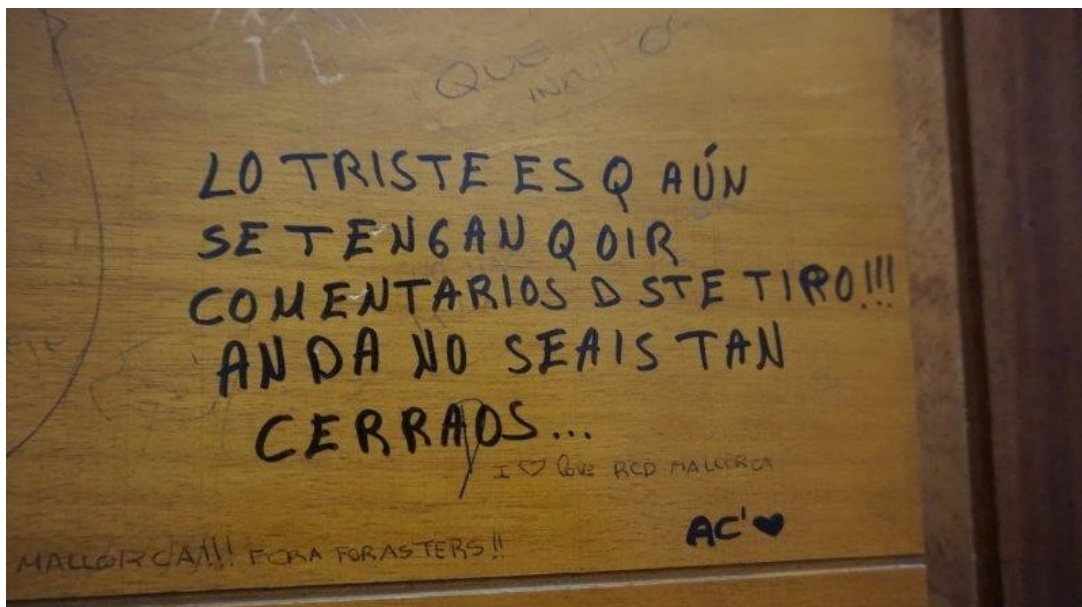 QUE
LO TRISTE ES Q AÚN
SE TENGAN Q OIR
COMENTARIOS D STE TIPO!!!
ANDA NO SEAIS TAN
CERRAOS...
I ♡ love RCD MALLORCA
AC' ♥
MALLORCA!!! FORA FORASTERS!!